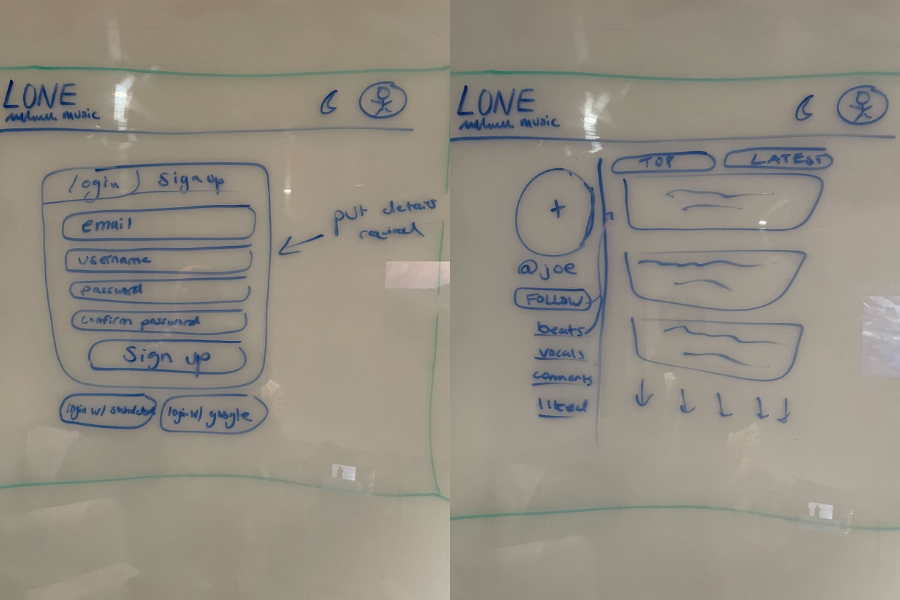 LONE
music
login Sign up
email
username
password
confirm password
Sign up
login w/
login w/ google
put details
required
LONE
music
TOP LATEST
+
@joe
FOLLOW
beats
vocals
comments
liked